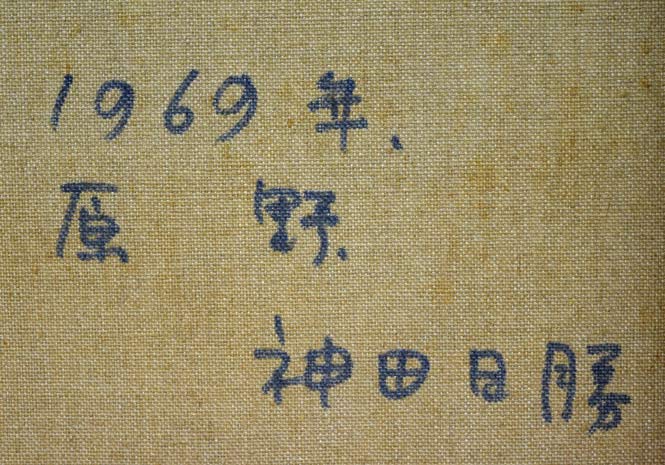 1969年、
原 野、
神田日勝